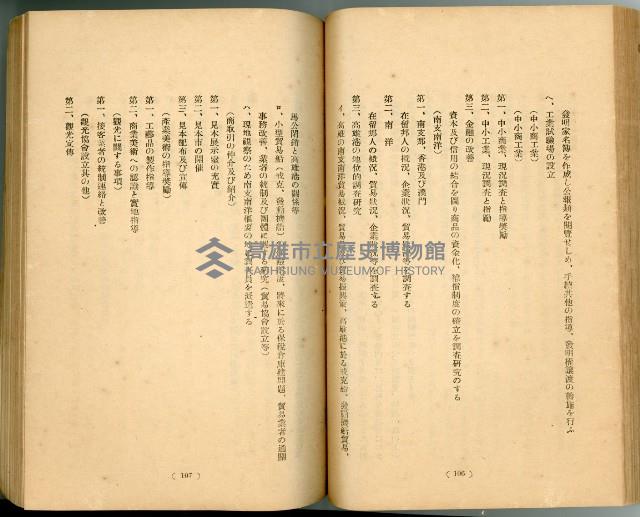 發明家名簿を作成し公報類を閱覽せしめ、手續其他の指導、發明權讓渡の斡旋を行ふ
ヘ、工業試驗場の設立
（中小商工業）
（中小商工業）
第一、中小商業、現況調査と指導獎勵
第二、中小工業、現況調査と指勵
第三、金融の改善
資本及び信用の結合を圖り商品の資金化、補償制度の確立を調査研究のする
（南支南洋）
第一、南支那、香港及び澳門
在留邦人の概況、企業狀況、貿易事情等を調査する
第二、南 洋
在留邦人の概況、貿易狀況、企業狀況等を調査する
第三、高雄港の地位的調査研究
イ、高雄の南支南洋貿易概況、貿易振興策、高雄港に於る戎克船、發動機船貿易、
(106)
馬公開鎖と高雄港の關係等
ロ、小型貿易船（戎克、發動機船）
將來に於る保税倉庫建問題、貿易業者の通關
事務改善、業者の統制及び團體に關する研究（貿易協會設立等）
ハ、現地視察のため南支南洋樞要の地に調査員を派遣する
（商取引の仲介及び紹介）
第一、見本展示室の充實
第二、見本市の開催
第三、見本配布及び宣傳
（產業美術の指導獎勵）
第一、工藝品の製作指導
第二、商業美術への認識と實地指導
（觀光に關する事項）
第一、接客業者の統制連絡と改善
（觀光協會設立其の他）
第二、觀光宣傳
(107)
高雄市立歷史博物館
KAOHSIUNG MUSEUM OF HISTORY